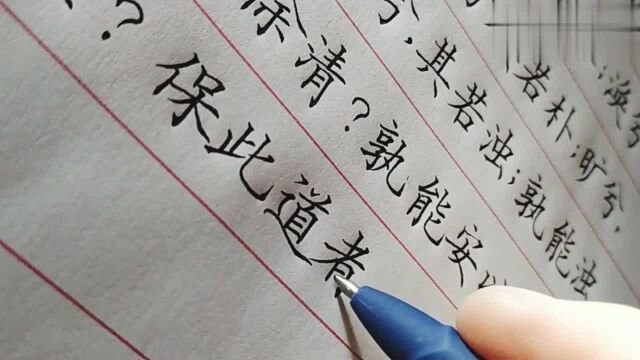 涣兮
若朴;旷兮,
兮,其若浊;孰能浊
徐清?孰能安以
?保此道者